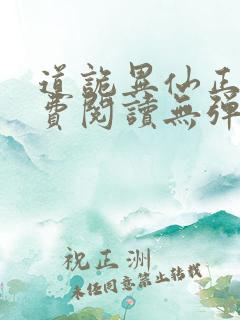 道詭異仙正
費閱讀無彈
祝正洲
未經同意禁止轉載